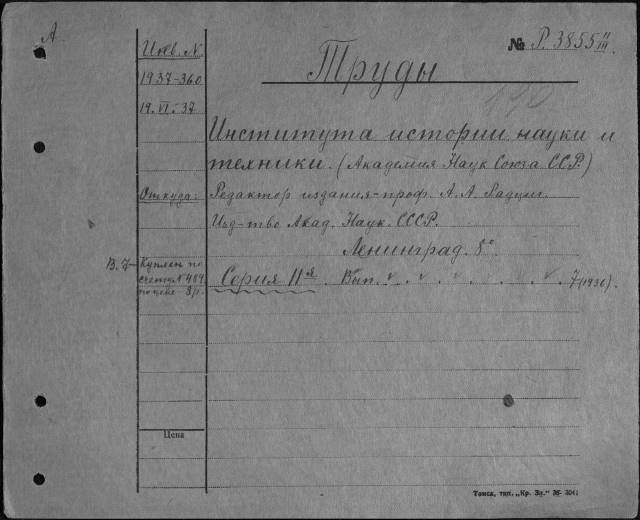 А
Инв. N.
№ Р. 3855 II/III
Труды
1937-360
19.VI-37
190
Института истории науки и
техники. (Академия Наук Союза ССР)
Откуда: Редактор издания-проф. А. А. Радциг.
Изд-тво Акад. Наук. СССР.
Ленинград. 8°
В. 7- Куплен по
счету N 484
по цене 8р.
Серия IIя. Вып. 7 (1936).
Цена
Томск, тип. „Кр. Зн." 36-